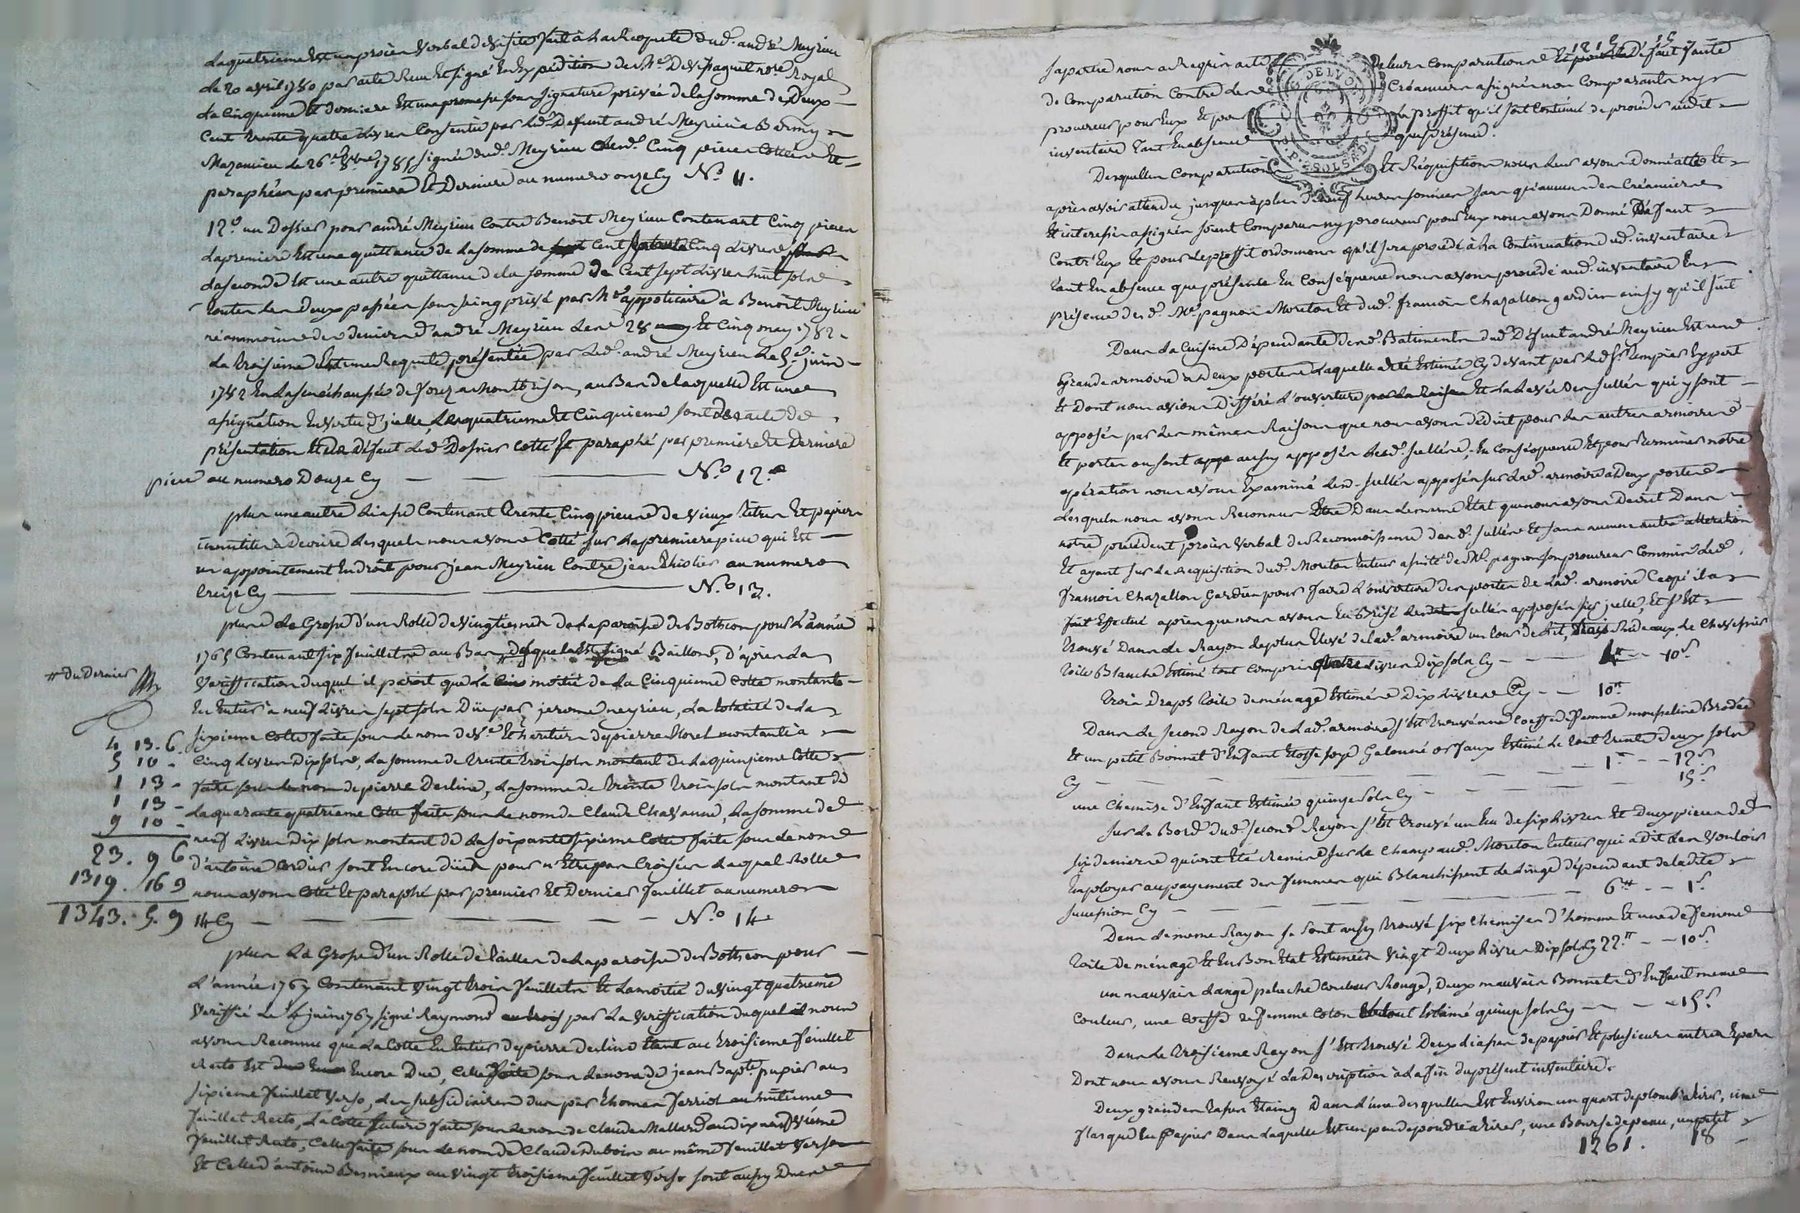 La quatrieme est un procès verbal de visite fait à la Requete dud. andré Meyrieu
le 20 avril 1780 par acte Reçu Et signé En Expédition de Me Desfraguet nore Royal
La Cinquieme & derniere Est une promesse sous signature privée de la somme de Deux
Cent trente quatre Livres Consentie par led. Defunt andré Meyrieu à
le 26e 8bre 1785 signée dud. Meyrieu Lesd. Cinq pieces Cottées Et
paraphées par premiere Et Derniere au numero onze Cy No. 11.
12.o un Dossier pour andré Meyrieu Contre Benoit Meyrieu Contenant Cinq pieces
La premiere Est une quittance de la somme de Cent Cinq Livres
La seconde Est une autre quittance de la somme de Cent sept Livres huit sols
toutes Les Deux passées sous seing privé par appoticaire à Benoit Meyrieu
des deniers d'andré Meyrieu Les 28 Et Cinq may 1782.
La troisieme Est une Requete présentée par led. andré Meyrieu Le 5e juin
1782 En La senéchaussée de forez a Montbrison, au Bas de laquelle Est une
assignation En vertu d'jcelle, Les quatrieme Et Cinquieme sont des actes de
présentation Et de Défaut Led. Dossier Cotté Et paraphé par premiere Et derniere
piece au numero Douze Cy No 12.
plus une autre Liasse Contenant trente Cinq pieces de vieux titres Et papiers
inutiles à décrire Lesquels nous avons Cotté sur La premiere piece qui Est
un appointement En droit pour jean Meyrieu Contre jean Thiolier au numero
treize Cy No. 13.
plus La Grosse d'un Rolle de vingtiemes de la paroisse de Bothéon pour L'année
1765 Contenant six feuillets au Bas Desquels Est signé Baillond, d'après La
# du Dernier
verification duquel il paroit que La moitié de La Cinquieme Cotte montante
En Entier à neuf Livres sept sols Düe par jerome meyrieu, La totalité de La
sixieme Cotte faite sous le nom de Ve Et héritiers de pierre Morel montante à
4 13. 6
Cinq Livres Dix sols, La somme de trente trois sols montant de La quinzieme Cotte
5 10 -
faite sous Le nom de pierre Decline, La somme de trente trois sols montant de
1 13 -
La quarante quatrieme Cotte faite sous Le nom de Claude Chavanne, La somme de
1 13 -
neuf Livres Dix sols montant de La soixante sixieme Cotte faite sous Le nom
9 10 -
d'antoine Cordier sont Encore dües pour n'Etre pas Croisées Lequel Rolle
23. 9 6
nous avons Cotté Et paraphé par premier Et Dernier feuillet au numero
1319. 16 9
14 Cy No 14
1343. 5. 9
plus La Grosse d'un Rolle de tailles de La paroisse de Bothéon pour
L'année 1767 Contenant vingt trois feuillets Et La moitié du vingt quatrieme
verifié Le 4 juin 1767 signé Raymond par La verification duquel nous
avons Reconnu que La Cotte En Entier de pierre decline au troisieme feuillet
Recto Est Encore Due, Celle faite sous Le nom de jean Bapte pupier au
sixieme feuillet verso, Les subsidiaires dus par thomas ferriol au huitieme
feuillet Recto, La Cotte Entiere faite sous Le nom de Claude Mallard au dix neuvième
feuillet Recto, Celle faite sous Le nom de Claude Duboin au même feuillet verso
Et Celle d'antoine Besmieux au vingt troisieme feuillet verso sont aussy Dues
1219 15
sa partie nous a Requis acte de leur Comparution Et Défaut faute
de Comparution Contre Les Créanciers assignés non Comparants ny
procureur pour Eux Et pour Le proffit qu'il soit Continué de proceder audit
inventaire tant En absence que présence.
GEN. DE LYON
Desquelles Comparutions Et Réquisitions nous Leur avons Donné acte Et
après avoir attendu jusques à plus de neuf heures sonnées sans qu'aucun des Créanciers
Et interessés assignés soient Comparus ny procureur pour Eux nous avons Donné Défaut
Contr'Eux Et pour Le proffit ordonnons qu'il sera procédé à La Continuation dud. inventaire
tant En absence que présence En Conséquence nous avons procédé aud. inventaire En
présence desd. Me pagnon Moreton Et dud. françois Chazallon gardien ainsy qu'il suit
Dans La Cuisine Dépendante desd. Batiments dud. Défunt andré Meyrieu Est une
Grande armoire à deux portes Laquelle a été Estimée Cy devant par Led. Sr Tempier Expert
Et Dont nous avions Differé L'ouverture Et La Levée des scellés qui y sont
apposés par Les mêmes Raisons que nous avons Déduit pour Les autres armoires
Et portes ou sont aussy apposés Lesd. scellés, En Conséquence Et pour terminer notre
opération nous avons Examiné Lesd. scellés apposés sur Lad. armoire à Deux portes
Lesquels nous avons Reconnus Etre Dans Le même Etat que nous avons Décrit Dans
notre précédent procès verbal de Reconnoissance desd. scellés Et sans aucune autre alteration
Et ayant sur La Requisition dud. Moreton tuteur assisté de Me pagnon son procureur Commis Led.
françois Chazallon Gardien pour faire L'ouverture des portes de Lad. armoire Ce qu'il a
fait Effectué après que nous avons En Brisé Les scellés apposés sur jcelle, Et s'Est
trouvé Dans Le Rayon Le plus Elevé de Lad. armoire un tour de Lit, trois Rideaux de Chassis
toile Blanche Estimé tout Compris quatre Livres Dix sols Cy 4# 10s
trois Draps toile de ménage Estimés Dix Livres Cy 10#
Dans Le second Rayon de Lad. armoire s'Est trouvé une Coeffe de femme mousseline Brodée
Et un petit Bonnet d'Enfant Etoffe soye Galonné or faux Estimé Le tout trente deux sols
Cy 1# 12s
une Chemise d'Enfant Estimée quinze sols Cy 15s
sur Le Bord dud. second Rayon s'Est trouvé un Ecu de six Livres Et Deux pieces de
six deniers qui ont Eté Remis sur Le Champ aud. Moreton tuteur qui a dit Les vouloir
Employer au payement des femmes qui Blanchissent Le Linge dépendant de la dite
succession Cy 6# 1s
Dans Le même Rayon se sont aussy trouvé six Chemises d'homme Et une de femme
toile De ménage Et En Bon Etat Estimées vingt Deux Livres Dix sols Cy 22# 10s
un mauvais Lange peluche Couleur Rouge, Deux mauvais Bonnets d'Enfant meme
Couleur, une Coeffe de femme Coton Le tout Estimé quinze sols Cy 15s
Dans Le troisieme Rayon s'Est trouvé Deux Liasses de papiers Et plusieurs autres Epars
Dont nous avons Renvoyé La Description à La fin du présent inventaire.
Deux grandes tasses Etaing Dans L'une desquelles Est Environ un quart de plomb à tirer, une
flasque En papier Dans Laquelle Est un peu de poudre à tirer, une Bourse de peau, un petit
1261. 18